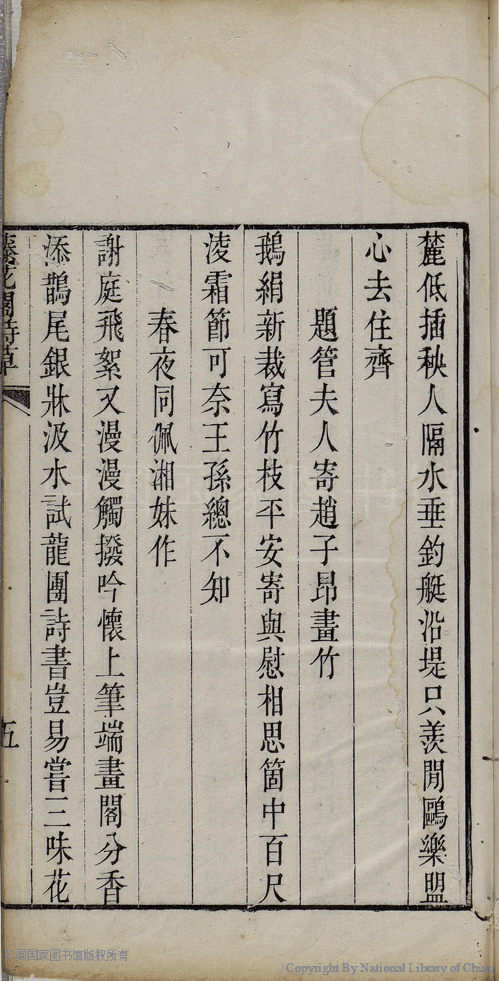 麓低插秧人隔水垂釣艇沿堤只羨閒鷗樂盟
心去住齊
題管夫人寄趙子昂畫竹
鵝絹新裁寫竹枝平安寄與慰相思箇中百尺
淩霜節可奈王孫總不知
春夜同佩湘妹作
謝庭飛絮又漫漫觸撥吟懷上筆端畫閣分香
添鵲尾銀牀汲水試龍團詩書豈易嘗三味花
花閣詩草
五
中国国家图书馆版权所有
Copyright By National Library of China